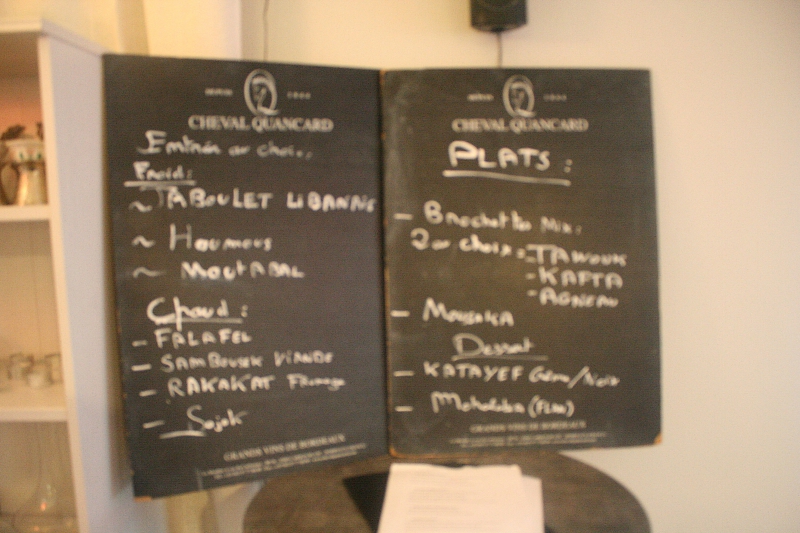 CHEVAL QUANCARD
Entrées au choix:
Froid:
~ TABOULET LIBANAIS
~ Houmous
~ MOUTABAL
Chaud:
- FALAFEL
- SAMBOUSEK VIANDE
- RAKAKAT Fromage
- Sojok
GRANDS VINS DE BORDEAUX
CHEVAL QUANCARD
PLATS:
- Brochettes Mix:
2 au choix: - TAWOUK
- KAFTA
- AGNEAU
- Moussaka
Dessert
- KATAYEF Crème/Noix
- Mohalabia (FLAN)
GRANDS VINS DE BORDEAUX